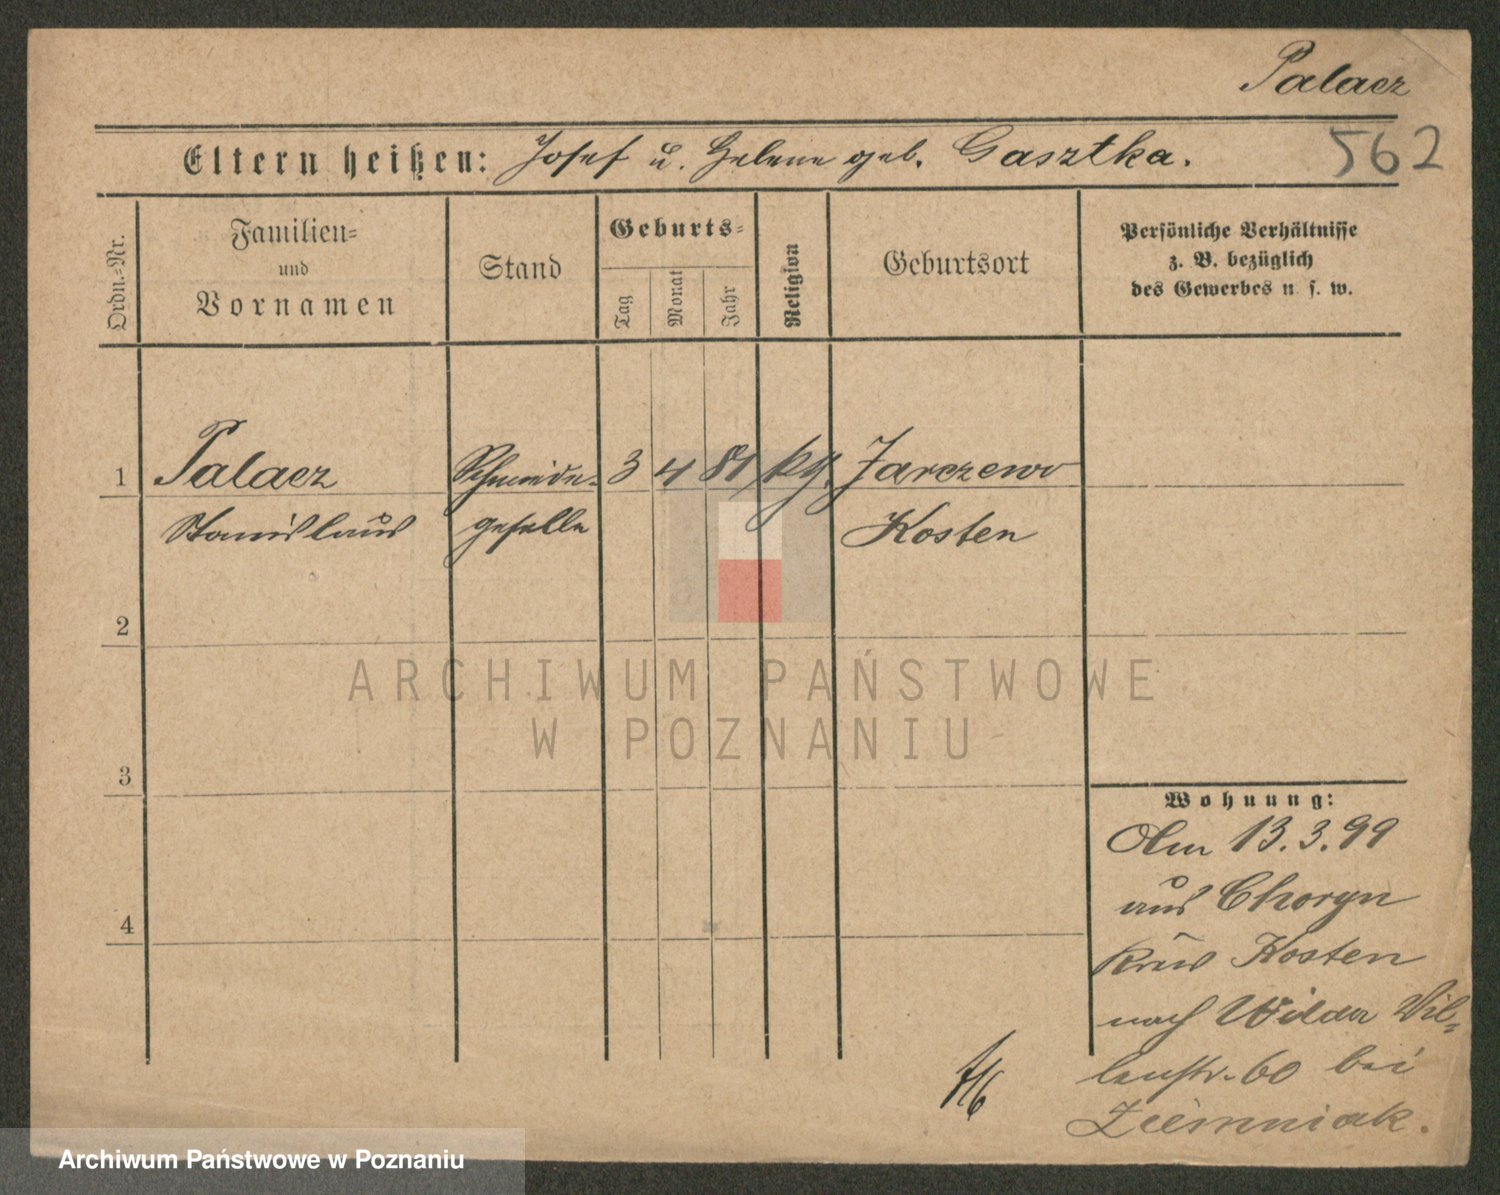 Palacz
562
Eltern heißen: Josef u. Helene geb. Gasztka.
Ordn.-Nr.
Familien-
und
Vornamen
Stand
Geburts-
Tag
Monat
Jahr
Religion
Geburtsort
Persönliche Verhältnisse
z. B. bezüglich
des Gewerbes u. s. w.
1 Palacz Schmiede- 3 4 81 kth. Jarczewo
Stanislaus geselle Kosten
2
3
4
Wohnung:
Am 13.3.99
aus Choryn
Kreis Kosten
nach Wilda Vil-
lenstr. 60 bei
Ziemniak.
ARCHIWUM PAŃSTWOWE
W POZNANIU
Archiwum Państwowe w Poznaniu